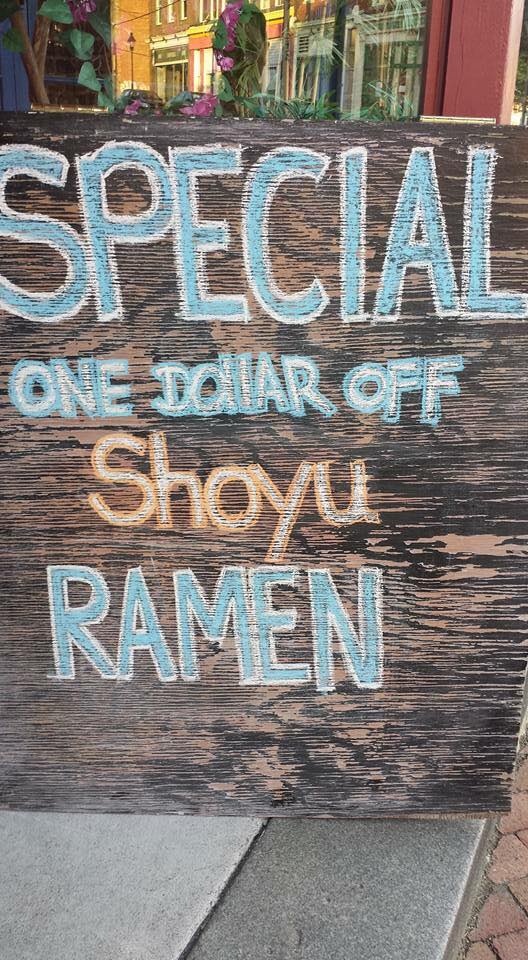 SPECIAL
ONE DOllAR OFF
Shoyu
RAMEN